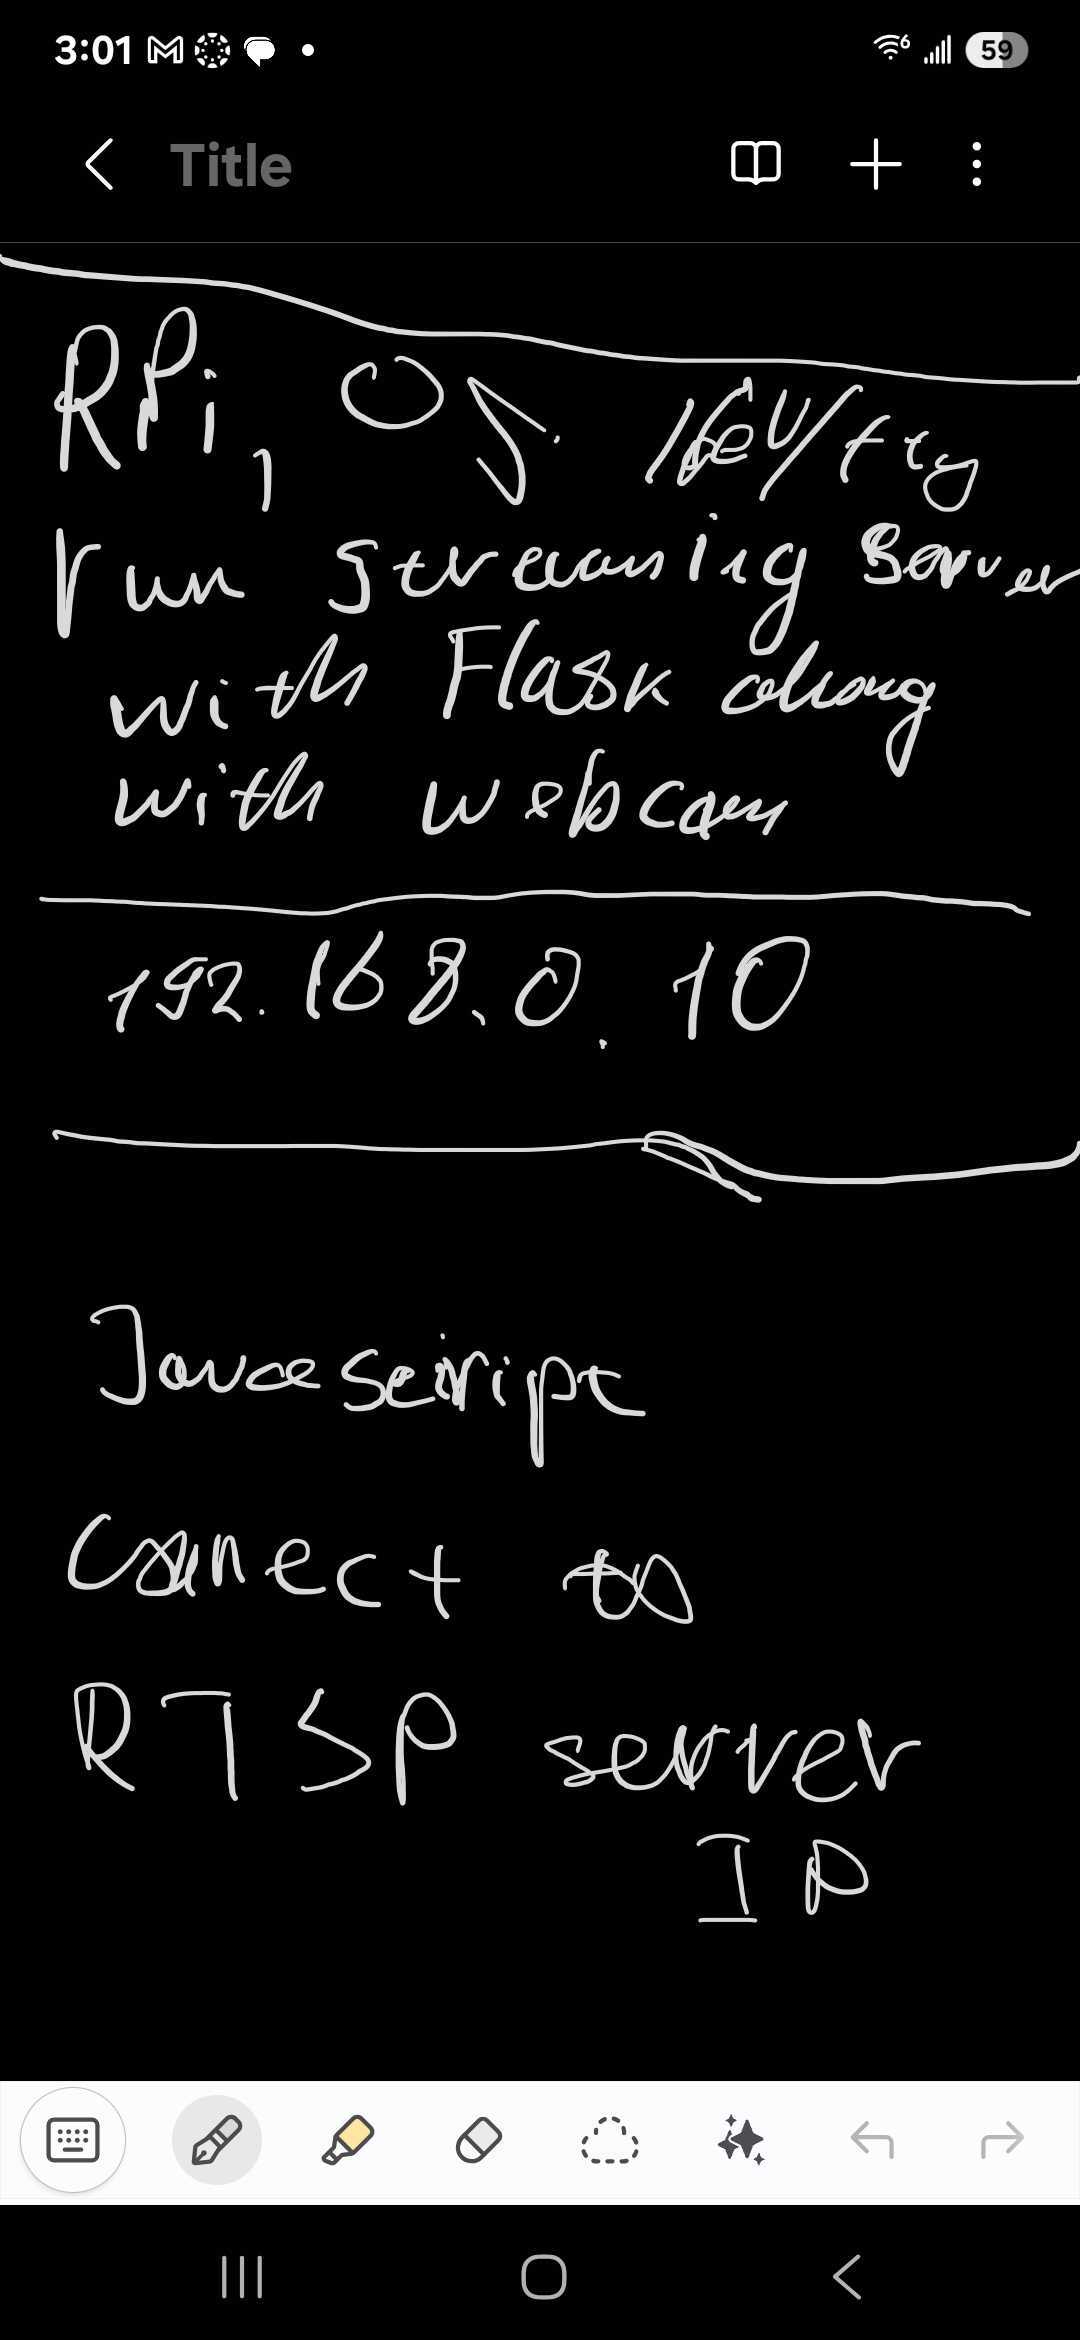 3:01 6 59
Title
RPi, OS. /dev/tty
run streaming Server
with Flask along
with webcam
192.168.0.10
Javascript
Connect to
RTSP server
IP